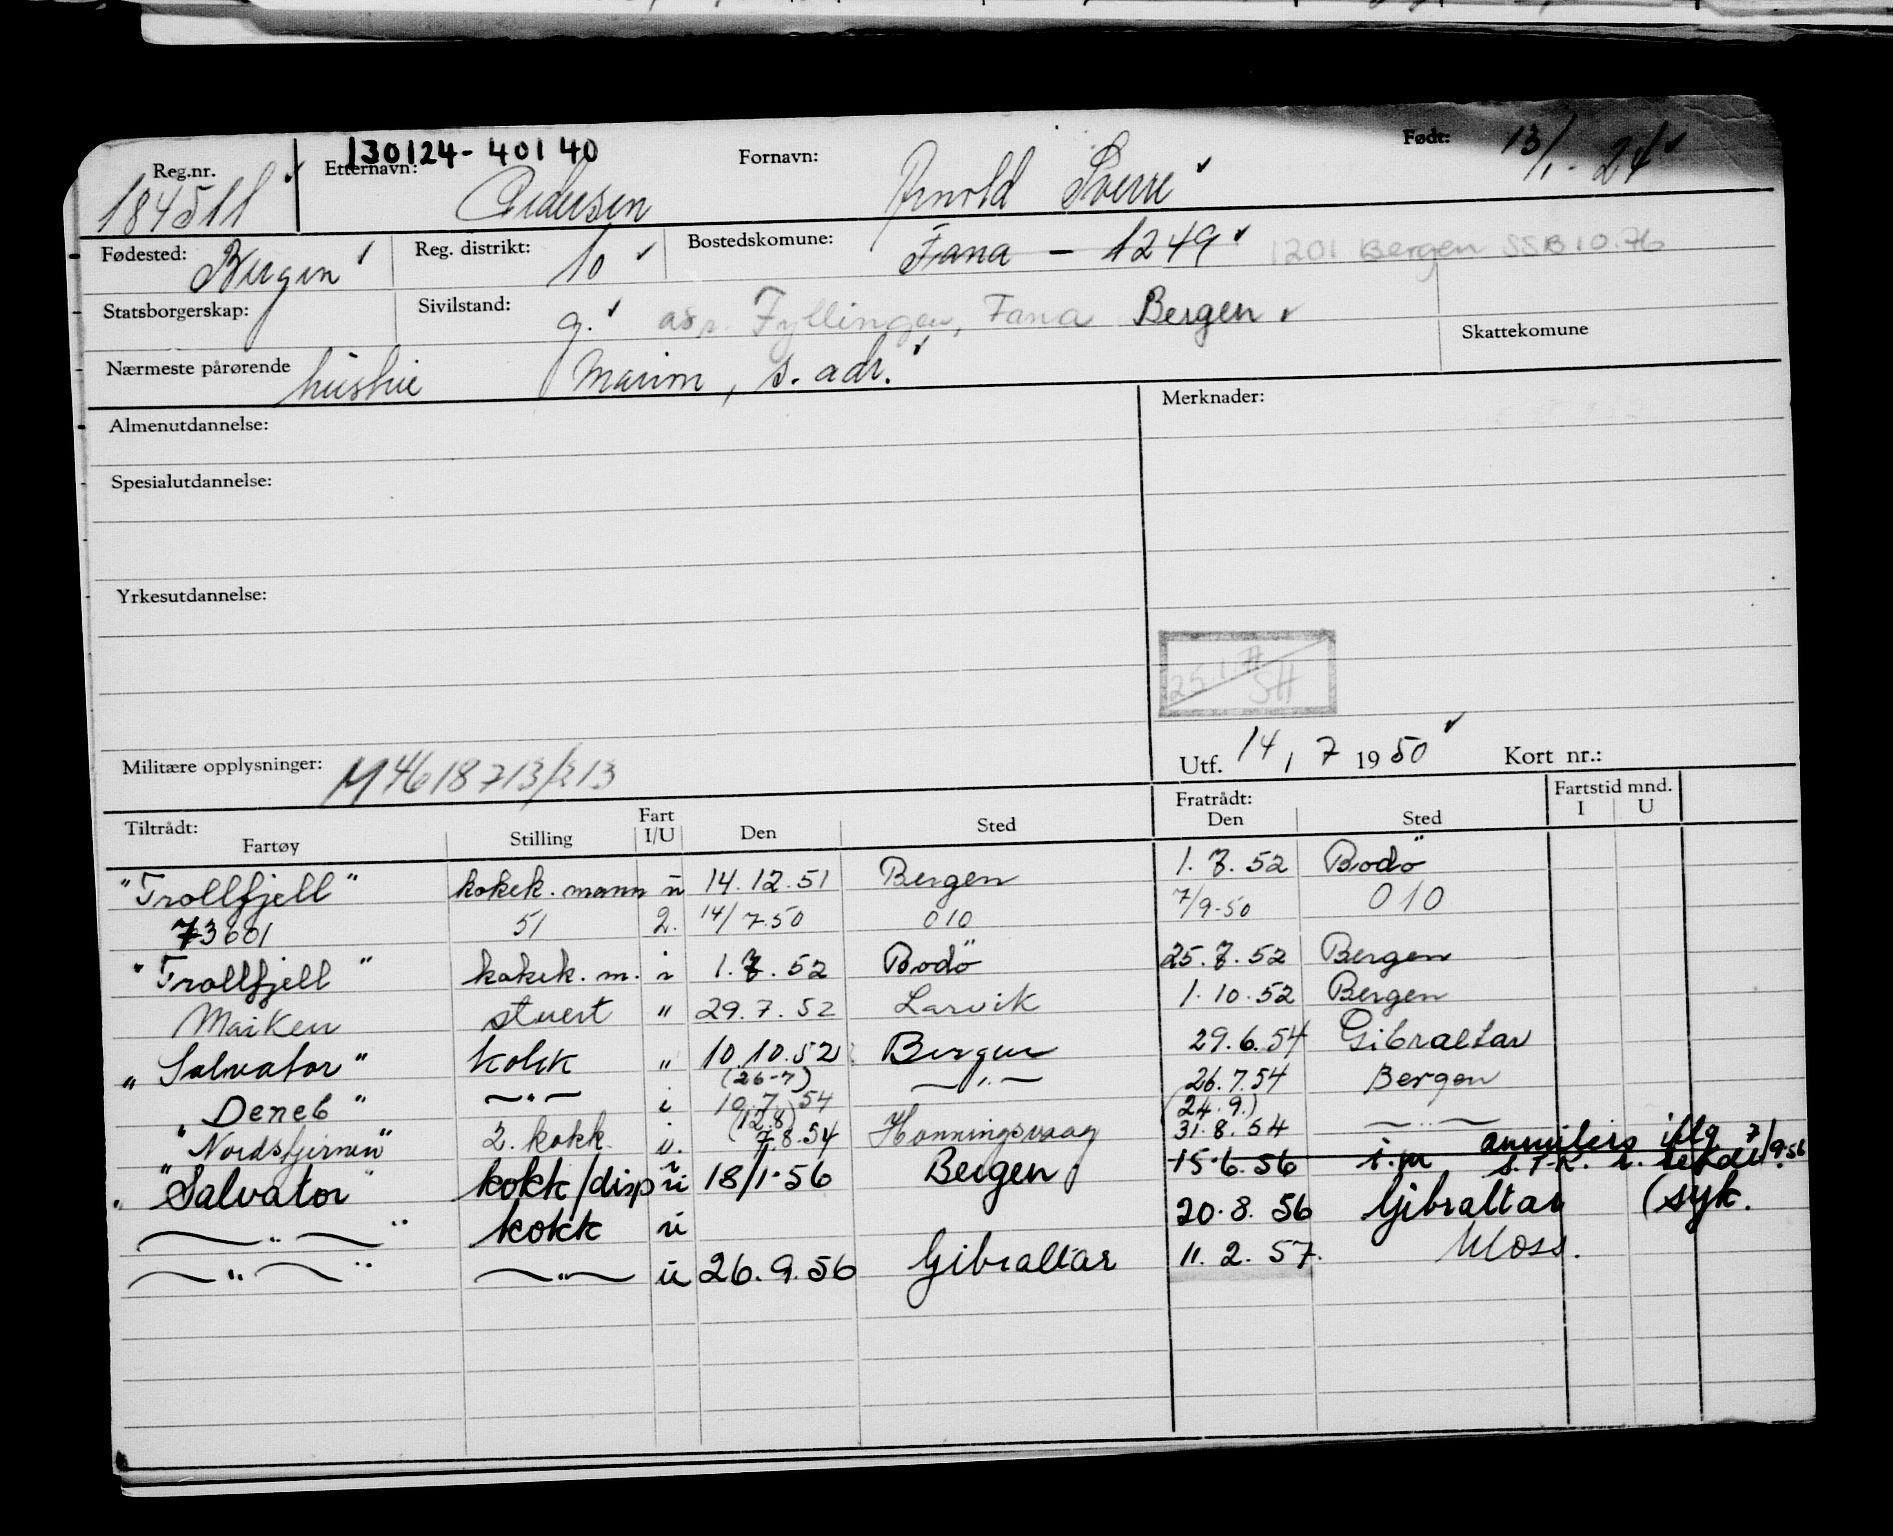 130124-40140
Reg.nr. Etternavn: Fornavn: Født: 13/1-24
184511 Pedersen Arnold Sverre
Fødested: Bergen Reg. distrikt: 10 Bostedskomune: Fana - 1249 1201 Bergen SSB 10.76
Statsborgerskap: Sivilstand: g. Fyllingen, Fana Bergen
Skattekomune
Nærmeste pårørende hustru s. adr.
Almenutdannelse: Merknader:
Spesialutdannelse:
Yrkesutdannelse:
Militære opplysninger: Utf. 14, 7 1950 Kort nr.:
Tiltrådt: Fratrådt: Fartstid mnd.
Fartøy Stilling Fart I/U Den Sted Den Sted I U
"Trollfjell" kokek. mann u 14.12.51 Bergen 1.7.52 Bodö
73601 51 2. 14/7.50 010 7/9-50 010
"Trollfjell" kokek. m. i 1.7.52 Bodö 25.7.52 Bergen
Maiken stuert " 29.7.52 Larvik 1.10.52 Bergen
"Salvator" kokk " 10.10.52 Bergen 29.6.54 Gibraltar
"Deneb" —"— i (26-7) 10.7.54 —"— 26.7.54 Bergen
"Nordstjernen" 2. kokk. (12.8) 7.8.54 Honningsvaag (24.9.) 31.8.54 —"—
"Salvator" kokk/disp u 18/1-56 Bergen 15.6.56 i.m annulers iflg 7/9-56
—"—" kokk u 20.8.56 Gibraltar (syk.
—"—" —"— u 26.9.56 Gibraltar 11.2.57. Moss.